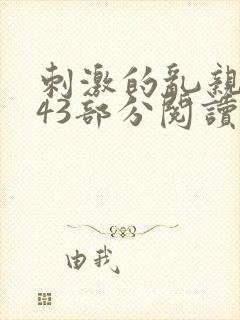 刺激的乱親
43部分閱讀
由我